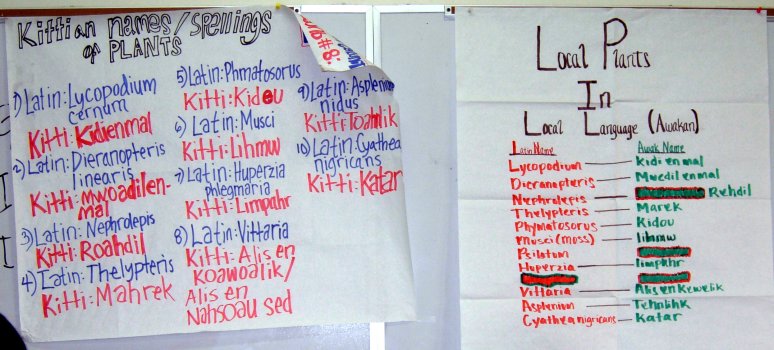 Kittian names/spellings
of PLANTS
1) Latin: Lycopodium
cernum
Kitti: Kidienmal
2) Latin: Dieranopteris
linearis
Kitti: Mwoadilen-
mal
3) Latin: Nephrolepis
Kitti: Roahdil
4) Latin: Thelypteris
Kitti: Mahrek
5) Latin: Phmatosorus
Kitti: Kidou
6) Latin: Musci
Kitti: Lihmw
7) Latin: Huperzia
phlegmaria
Kitti: Limpahr
8) Latin: Vittaria
Kitti: Alis en
Koawoalik/
Alis en
Nahsoau sed
9) Latin: Asplenium
nidus
Kitti: Toahlik
10) Latin: Cyathea
nigricans
Kitti: Katar
Local Plants
In
Local Language (Awakan)
Latin Name Awak Name
Lycopodium Kidi en mal
Dieranopteris Mwedil en mal
Nephrolepis Rehdil
Thelypteris Marek
Phymatosorus Kidou
Musci (moss) lihmw
Psilotum
Huperzia limpahr
Vittaria Alis en Kewelik
Asplenium Tehnlihk
Cyathea nigricans Katar